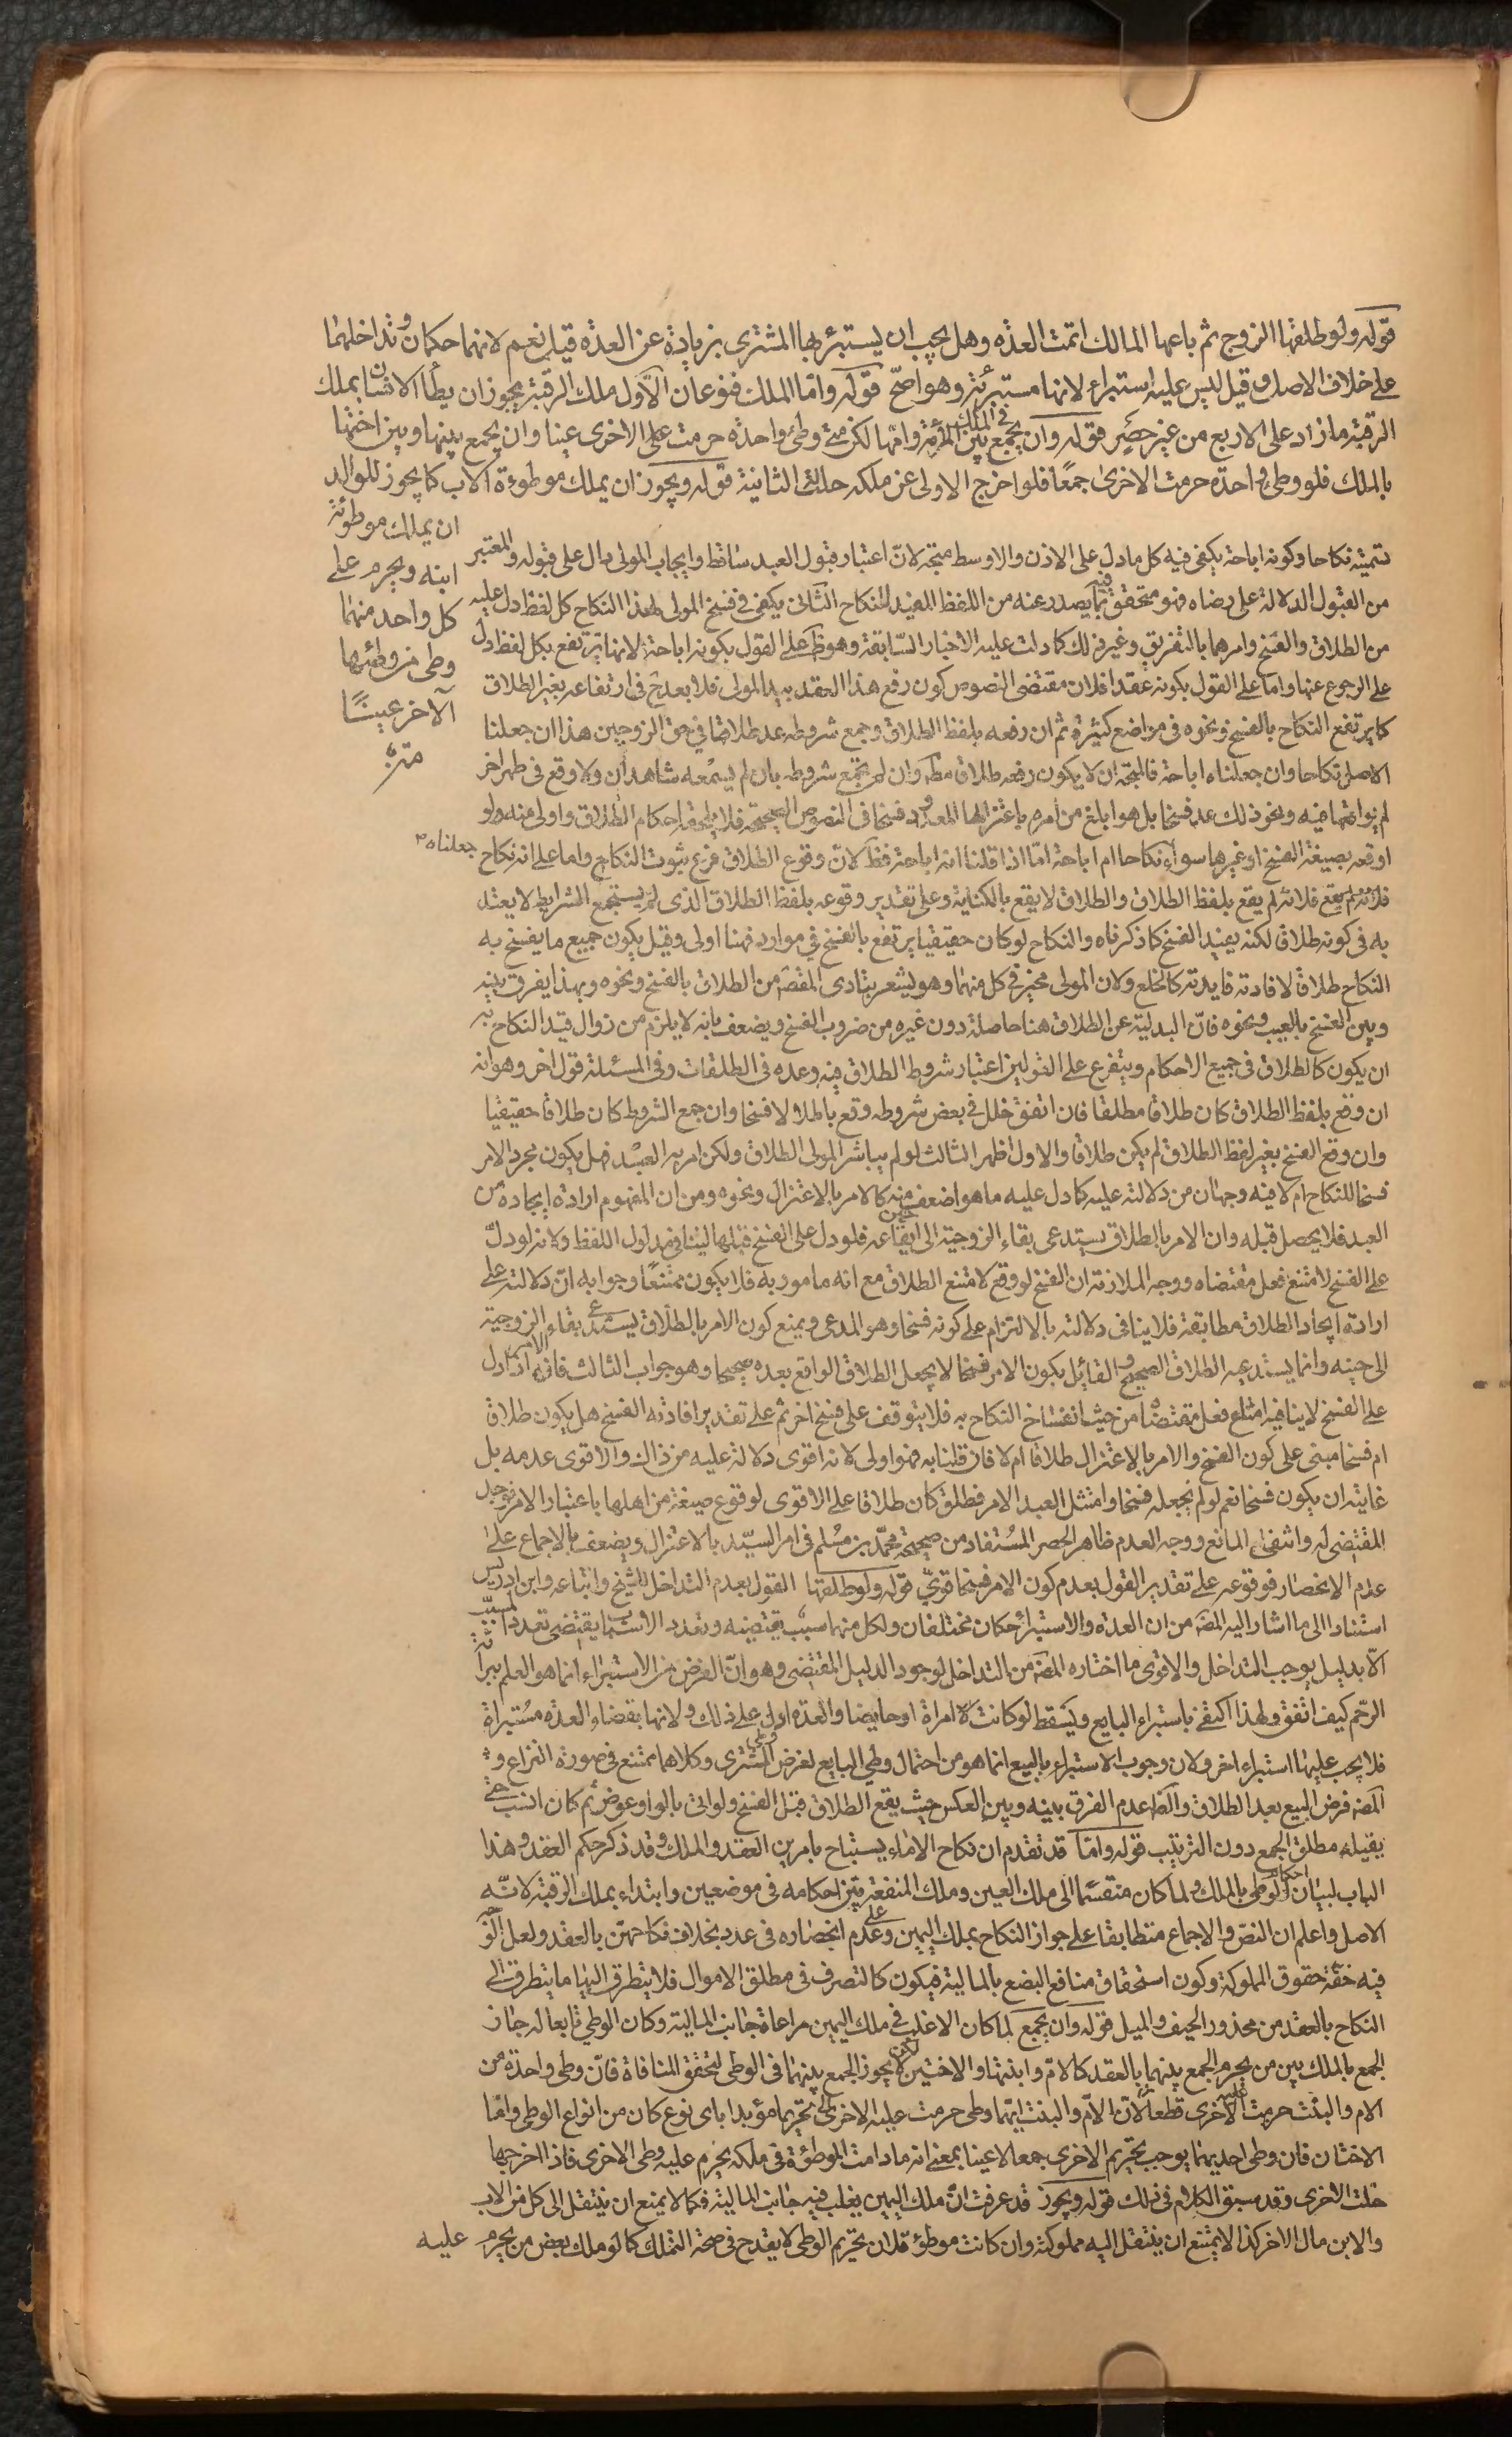 قوله ولو طلقها الزوج ثم باعها المالك اتمت العدة وهل يجب ان يستبرئها المشتري بزيادة عن العدة قيل نعم لانهما حكمان وتداخلهما
على خلاف الاصل وقيل ليس عليه استبراء لانها مستبرئة وهو اصح قوله واما الملك فنوعان الاول ملك الرقبة يجوز ان يطأ الانسان بملك
الرقبة ما زاد على الاربع من غير حصر قوله وان يجمع في الملك بين المرأة وامها لكن متى وطئ واحدة حرمت على الاخرى عينا وان يجمع بينها وبين اختها
بالملك فلو وطئ واحدة حرمت الاخرى جمعا فلو اخرج الاولى عن ملكه حلت الثانية قوله ويجوز ان يملك موطوءة الاب كما يجوز للوالد
ان يملك موطوئة
ابنه ويحرم على
كل واحد منهما
وطى من وطئها
الآخر عينا
متن
تسميته نكاحا وكونه اباحة يكفي فيه كل ما دل على الاذن والاوسط متجه لان اعتبار قبول العبد ساقط وايجاب المولى دال على قبوله والمعتبر
من القبول الدلالة على رضاه فهو متحقق فيما يصدر عنه من اللفظ المفيد للنكاح الثاني يكفي في فسخ المولى لهذا النكاح كل لفظ دل عليه
من الطلاق والفسخ وامرهما بالتفريق وغير ذلك كما دلت عليه الاخبار السابقة وهو ظ على القول بكونه اباحة لانها ترتفع بكل لفظ دل
على الرجوع عنها واما على القول بكونه عقدا فلان مقتضى النصوص كون رفع هذا العقد بيد المولى فلا بعد ح في ارتفاعه بغير الطلاق
كما يرتفع النكاح بالفسخ ونحوه في مواضع كثيرة ثم ان رفعه بلفظ الطلاق وجمع شروطه عد طلاقا في حق الزوجين هذا ان جعلنا
الاصل نكاحا وان جعلناه اباحة فالمتجه ان لا يكون رفعه طلاقا مطلقا وان لم يجمع شروطه بان لم يسمعه شاهدان ولا وقع في طهر اخر
لم يواقعها فيه ونحو ذلك عد فسخا بل هو ابلغ من امره باعتزالها المعدود فسخا في النصوص الصحيحة فلا يلحقه احكام الطلاق واولى منه ولو
اوقعه بصيغة الفسخ او غيرها سواء جعلناه نكاحا ام اباحة اما اذا قلنا انه اباحة فظ لان وقوع الطلاق فرع ثبوت النكاح واما على انه نكاح
فلانه لم يقع بلفظ الطلاق والطلاق لا يقع بالكناية وعلى تقدير وقوعه بلفظ الطلاق الذي لم يستجمع الشرايط لا يعتد
به في كونه طلاقا لكنه يفيد الفسخ كما ذكرناه والنكاح لو كان حقيقيا يرتفع بالفسخ في موارد فهنا اولى وقيل يكون جميع ما يفسخ به
النكاح طلاقا لافادته فايدته كالخلع ولان المولى مخير في كل منهما وهو يشعر بتادي المقص من الطلاق بالفسخ ونحوه وبهذا يفرق بينه
وبين الفسخ بالعيب ونحوه فان البدلية عن الطلاق هنا حاصلة دون غيره من ضروب الفسخ ويضعف بانه لا يلزم من زوال قيد النكاح به
ان يكون كالطلاق في جميع الاحكام ويتفرع على القولين اعتبار شروط الطلاق فيه وعده في الطلقات وفي المسئلة قول اخر وهو انه
ان وقع بلفظ الطلاق كان طلاقا مطلقا فان اتفق خلل في بعض شروطه وقع باطلا لا فسخا وان جمع الشروط كان طلاقا حقيقيا
وان وقع الفسخ بغير لفظ الطلاق لم يكن طلاقا والاول اظهر الثالث لو لم يباشر المولى الطلاق ولكن امر به العبد فهل يكون مجرد الامر
فسخا للنكاح ام لا فيه وجهان من دلالته عليه كما دل عليه ما هو اضعف منه كالامر بالاعتزال ونحوه ومن ان المفهوم ارادة ايجاده من
العبد فلا يحصل قبله وان الامر بالطلاق يستدعي بقاء الزوجية الى حين ايقاعه فلو دل على الفسخ قبلها لتنافى مدلول اللفظ ولانه لو دل
على الفسخ لامتنع فعل مقتضاه ووجه الملازمة ان الفسخ لو وقع لامتنع الطلاق مع انه مامور به فلا يكون ممتنعا وجوابه ان دلالته على
ارادة ايجاد الطلاق مطابقة فلا ينافى دلالته بالالتزام على كونه فسخا وهو المدعى ويمنع كون الامر بالطلاق يستدعي بقاء الزوجية
الى حينه وانما يستدعيه الطلاق الصحيح والقائل بكون الامر فسخا لا يجعل الطلاق الواقع بعده صحيحا وهو جواب الثالث فان الامر اذا دل
على الفسخ لا ينافيه امتناع فعل مقتضاه من حيث انفساخ النكاح به فلا يتوقف على فسخ اخر ثم على تقدير افادته الفسخ هل يكون طلاقا
ام فسخا مبنى على كون الفسخ والامر بالاعتزال طلاقا ام لا فان قلنا به فهو اولى لانه اقوى دلالة عليه من ذلك والاقوى عدمه بل
غايته ان يكون فسخا نعم لو لم يجعله فسخا وامتثل العبد الامر فطلق كان طلاقا على الاقوى لوقوع صيغة من اهلها باعتبار الامر فوجد
المقتضي له وانتفى المانع ووجه العدم ظاهر الحصر المستفاد من صحيحة محمد بن مسلم في امر السيد بالاعتزال ويضعف بالاجماع على
عدم الانحصار فوقوعه على تقدير القول بعدم كون الامر فسخا قوي قوله ولو طلقها القول بعدم التداخل للشيخ واتباعه وابن ادريس
استنادا الى ما اشار اليه المص من ان العدة والاستبراء حكمان مختلفان ولكل منهما سبب يقتضيه وتعدد الاسباب يقتضي تعدد المسبب
الا بدليل يوجب التداخل والاقوى ما اختاره المص من التداخل لوجود الدليل المقتضي وهو ان الغرض من الاستبراء انما هو العلم ببراءة
الرحم كيف اتفق ولهذا اكتفى باستبراء البايع ويسقط لو كانت لامراة او حايضا والعدة ادل على ذلك ولانها بقضاء العدة مستبراة
فلا يجب عليها استبراء اخر ولان وجوب الاستبراء بالبيع انما هو من احتمال وطي البايع لغرض وطي المشتري وكلاهما ممتنع في صورة النزاع و
المص فرض البيع بعد الطلاق والظ عدم الفرق بينه وبين العكس حيث يقع الطلاق قبل الفسخ ولو اتى بالواو عوض ثم كان انسب حتى
يفيد مطلق الجمع دون الترتيب قوله واما قد تقدم ان نكاح الاماء يستباح بامرين العقد والملك وقد ذكر حكم العقد وهذا
الباب لبيان احكام الوطي بالملك ولما كان منقسما الى ملك العين وملك المنفعة بين احكامه في موضعين وابتداء بملك الرقبة لانه
الاصل واعلم ان النص والاجماع متطابقا على جواز النكاح بملك اليمين وعلى عدم انحصاره في عدد بخلاف نكاحهن بالعقد ولعل الوجه
فيه خفة حقوق المملوكة وكون استحقاق منافع البضع بالمالية فيكون كالتصرف في مطلق الاموال فلا يتطرق اليها ما يتطرق الى
النكاح بالعقد من محذور الحيف والميل قوله وان يجمع لما كان الاغلب في ملك اليمين مراعاة جانب المالية وكان الوطي تابعا له جاز
الجمع بالملك بين من يحرم الجمع بينهما بالعقد كالام وابنتها والاختين لكن لا يجوز الجمع بينهما في الوطى لتحقق المنافاة فان وطى واحدة من
الام والبنت حرمت عليه الاخرى قطعا لان الام والبنت ايتهما وطى حرمت عليه الاخرى تحريما مؤبدا باى نوع كان من انواع الوطى واما
الاختان فان وطى احديهما يوجب تحريم الاخرى جمعا لا عينا بمعنى انه ما دامت الموطوءة في ملكه يحرم عليه وطى الاخرى فاذا اخرجها
حلت الاخرى وقد سبق الكلام في ذلك قوله ويجوز قد عرفت ان ملك اليمين يغلب فيه جانب المالية فكما لا يمنع ان ينتقل الى كل من الاب
والابن مال الاخر كذا لا يمتنع ان ينتقل اليه مملوكته وان كانت موطوءة لان تحريم الوطى لا يقدح في صحة التملك كما لو ملك بعض من يحرم عليه